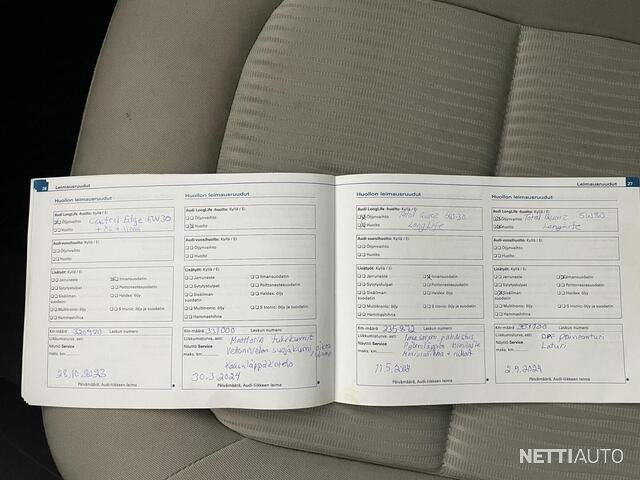 26
Leimausruudut
Huollon leimausruudut
Audi LongLife -huolto: Kyllä / Ei
Öljynvaihto
Huolto
Castrol Edge 5W30
Audi-vuosihuolto: Kyllä / Ei
Öljynvaihto
Huolto
Lisätyöt: Kyllä / Ei
Jarruneste
Ilmansuodatin
Sytytystulpat
Polttonestesuodatin
Sisäilmansuodatin
Haldex: öljy
Multitronic: öljy
S tronic: öljy ja suodatin
Hammashihna
Km-määrä 320920
Laskun numero
Liikkumisturva, asti:
Näyttö Service
maks. km
28.10.2023
Päivämäärä, Audi-liikkeen leima
Huollon leimausruudut
Audi LongLife -huolto: Kyllä / Ei
Öljynvaihto
Huolto
Audi-vuosihuolto: Kyllä / Ei
Öljynvaihto
Huolto
Lisätyöt: Kyllä / Ei
Jarruneste
Ilmansuodatin
Sytytystulpat
Polttonestesuodatin
Sisäilmansuodatin
Haldex: öljy
Multitronic: öljy
S tronic: öljy ja suodatin
Hammashihna
Km-määrä 331000
Laskun numero
Liikkumisturva, asti:
Näyttö Service
maks. km
Moottorin tukikumit
Vetonivelen suojakumi
Kaasuläppäkotelo
30.3.2024
Päivämäärä, Audi-liikkeen leima
Leimausruudut
27
Huollon leimausruudut
Audi LongLife -huolto: Kyllä / Ei
Öljynvaihto
Huolto
Total Quarz 5W30
LongLife
Audi-vuosihuolto: Kyllä / Ei
Öljynvaihto
Huolto
Lisätyöt: Kyllä / Ei
Jarruneste
Ilmansuodatin
Sytytystulpat
Polttonestesuodatin
Sisäilmansuodatin
Haldex: öljy
Multitronic: öljy
S tronic: öljy ja suodatin
Hammashihna
Km-määrä
Laskun numero
Liikkumisturva, asti:
Näyttö Service
maks. km
11.5.2024
Päivämäärä, Audi-liikkeen leima
Huollon leimausruudut
Audi LongLife -huolto: Kyllä / Ei
Öljynvaihto
Huolto
Total Quarz 5W30
LongLife
Audi-vuosihuolto: Kyllä / Ei
Öljynvaihto
Huolto
Lisätyöt: Kyllä / Ei
Jarruneste
Ilmansuodatin
Sytytystulpat
Polttonestesuodatin
Sisäilmansuodatin
Haldex: öljy
Multitronic: öljy
S tronic: öljy ja suodatin
Hammashihna
Km-määrä
Laskun numero
Liikkumisturva, asti:
Näyttö Service
maks. km
DPF paineanturi
Laturi
2.9.2024
Päivämäärä, Audi-liikkeen leima
NETTIAUTO